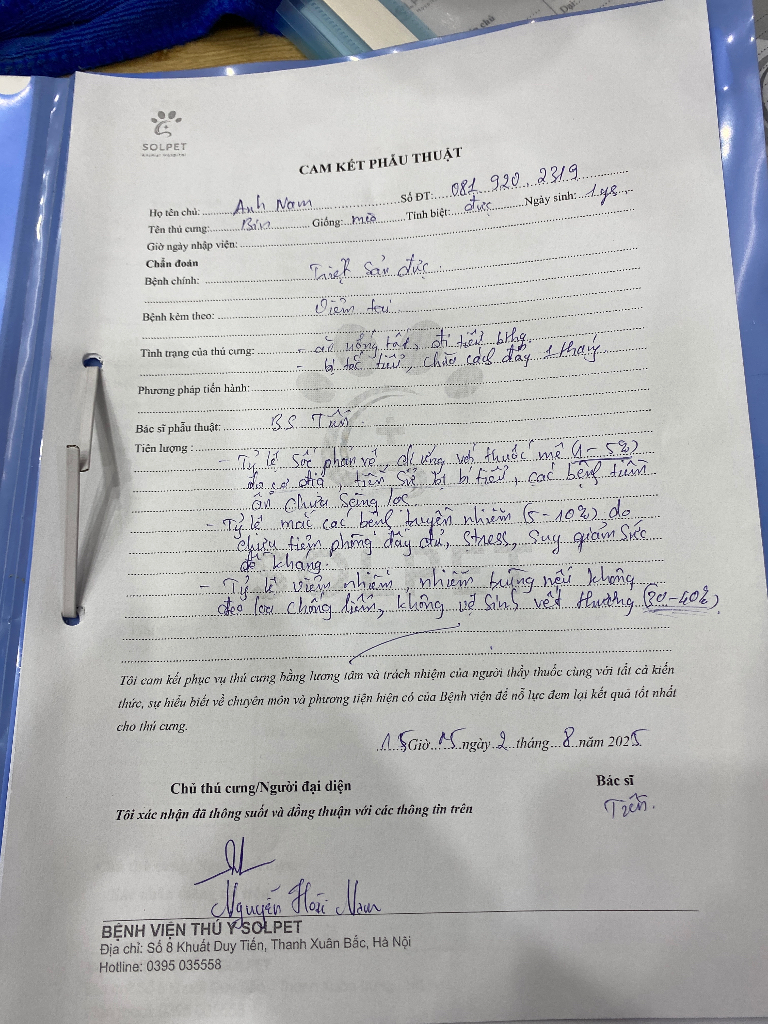 SOLPET
CAM KẾT PHẪU THUẬT
Họ tên chủ: Anh Nam Số ĐT: 081 920 2319
Tên thú cưng: Giống: mèo Tính biệt: đực Ngày sinh: 1
Giờ ngày nhập viện:
Chẩn đoán
Bệnh chính: Triệt sản đực
Bệnh kèm theo: Viêm tai
Tình trạng của thú cưng: - ăn uống tốt, đi tiểu bthg
- bị tắc tiểu, chữa cách đây 1 tháng
Phương pháp tiến hành:
Bác sĩ phẫu thuật: BS
Tiên lượng :
- Tỷ lệ sốc phản vệ, dị ứng với thuốc mê (1-5%)
do cơ địa, tiền sử bị bí tiểu, các bệnh tiềm
ẩn chưa sàng lọc
- Tỷ lệ mắc các bệnh truyền nhiễm (5-10%) do
chưa tiêm phòng đầy đủ, stress, suy giảm sức
đề kháng.
- Tỷ lệ viêm nhiễm, nhiễm trùng nếu không
đeo loa chống liếm, không vệ sinh vết thương (30-40%)
Tôi cam kết phục vụ thú cưng bằng lương tâm và trách nhiệm của người thầy thuốc cùng với tất cả kiến
thức, sự hiểu biết về chuyên môn và phương tiện hiện có của Bệnh viện để nỗ lực đem lại kết quả tốt nhất
cho thú cưng.
15 Giờ 15 ngày 2 tháng 8 năm 2025
Chủ thú cưng/Người đại diện Bác sĩ
Tôi xác nhận đã thông suốt và đồng thuận với các thông tin trên
Nguyễn Hoài Nam
BỆNH VIỆN THÚ Y SOLPET
Địa chỉ: Số 8 Khuất Duy Tiến, Thanh Xuân Bắc, Hà Nội
Hotline: 0395 035558